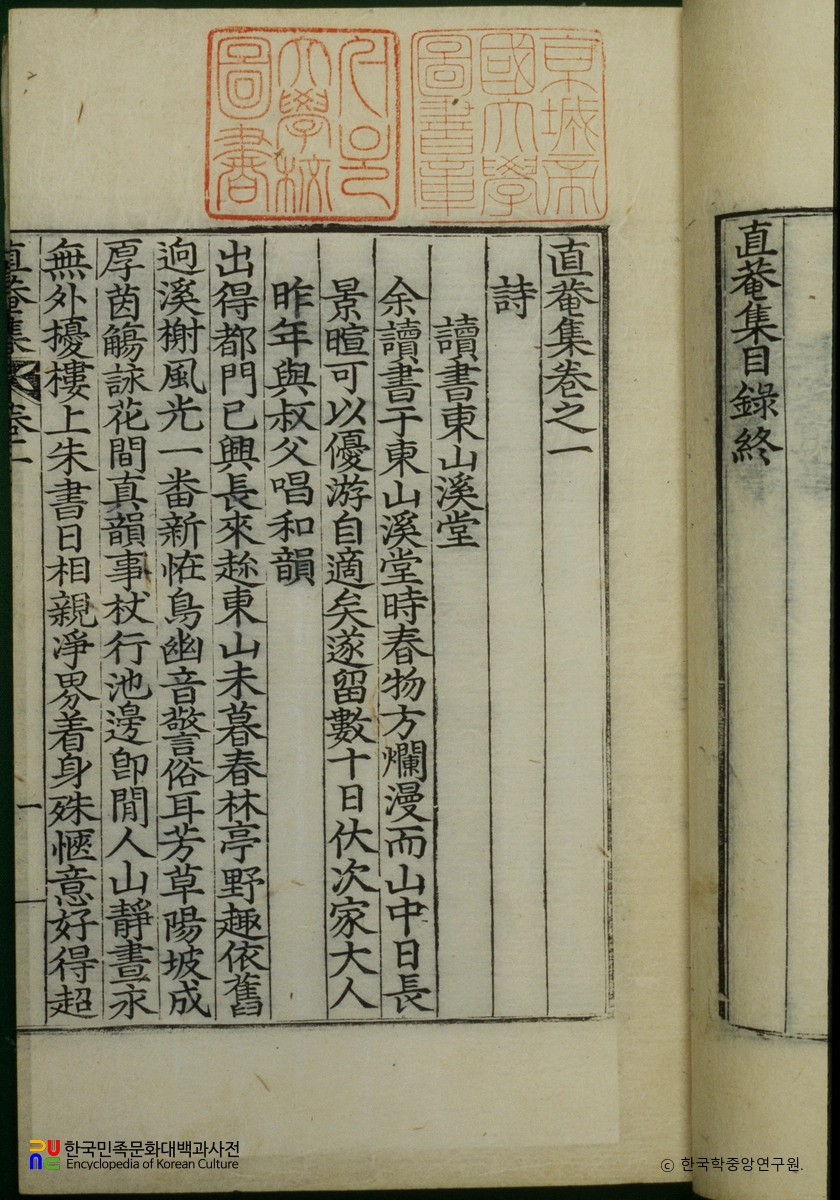 直菴集目錄終
京城帝
國大學
圖書章
서울
大學校
圖書
直菴集卷之一
詩
讀書東山溪堂
余讀書于東山溪堂時春物方爛漫而山中日長
景暄可以優游自適矣遂留數十日伏次家大人
昨年與叔父唱和韻
出得都門已興長來趂東山未暮春林亭野趣依舊
逈溪榭風光一番新恠鳥幽音警俗耳芳草陽坡成
厚茵觴詠花間真韻事杖行池邊卽閒人山靜晝永
無外擾樓上朱書日相親淨界着身殊愜意好得超
直菴集 卷一
一
한국민족문화대백과사전
Encyclopedia of Korean Culture
ⓒ 한국학중앙연구원.